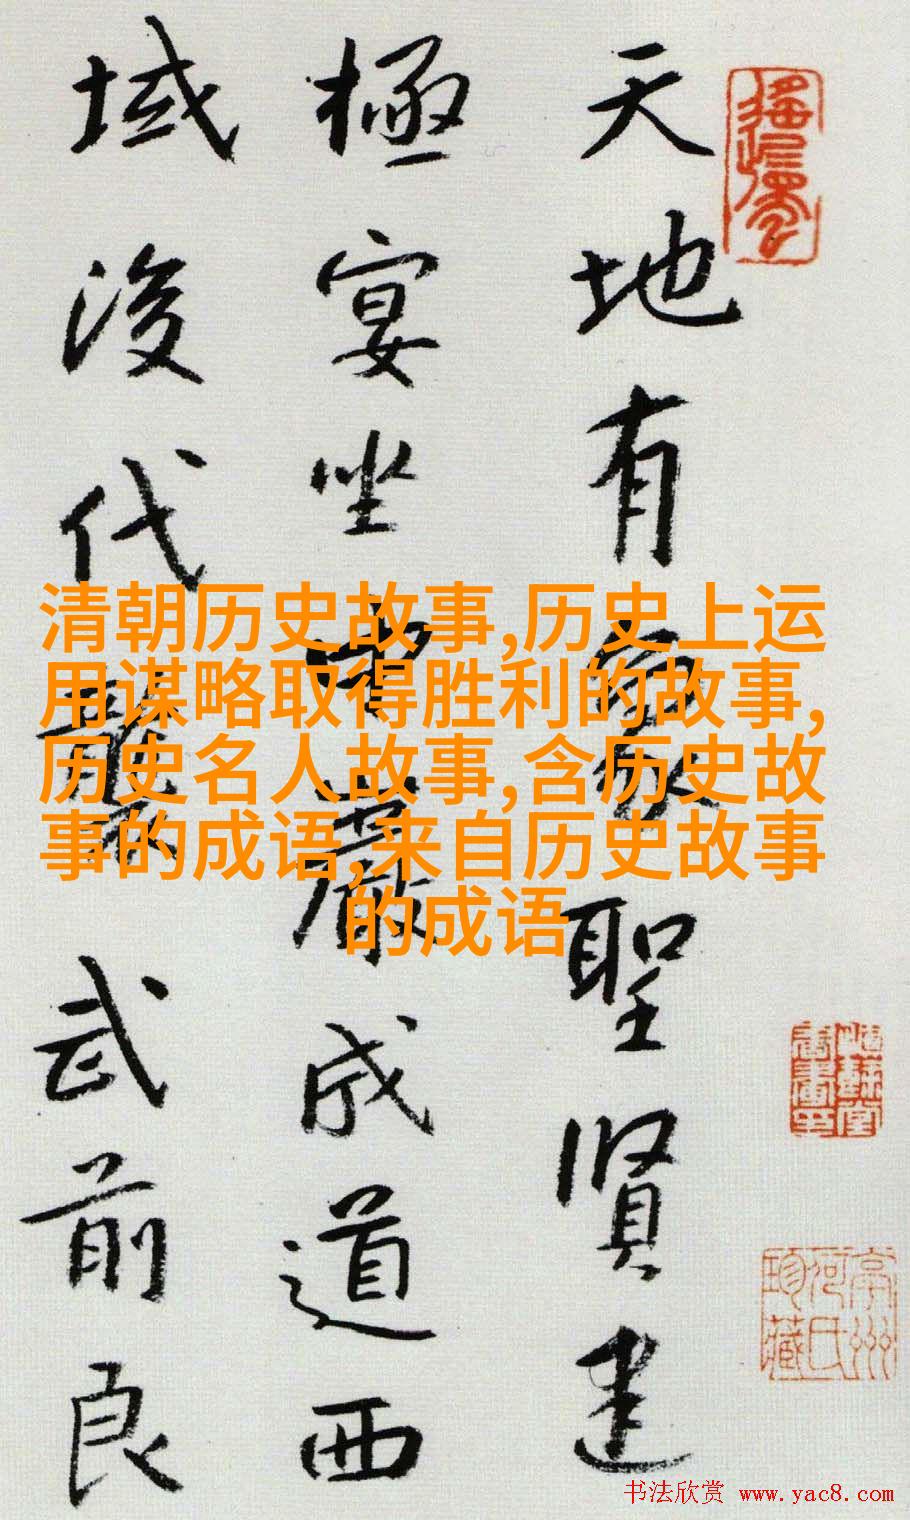 天地有象聖賢建
極宴坐中嚴成道西
域後代襲武前良
清朝历史故事,历史上运
用谋略取得胜利的故事,
历史名人故事,含历史故
事的成语,来自历史故事
的成语
书法欣赏 www.yac8.com